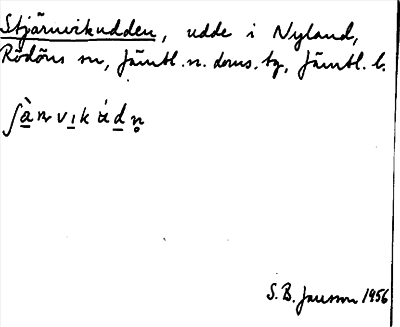 Stjärnvikudden, udde i Nyland,
Rödöns sn, Jämtl. n. doms. tg, Jämtl. l.
S. B. Jansson 1956